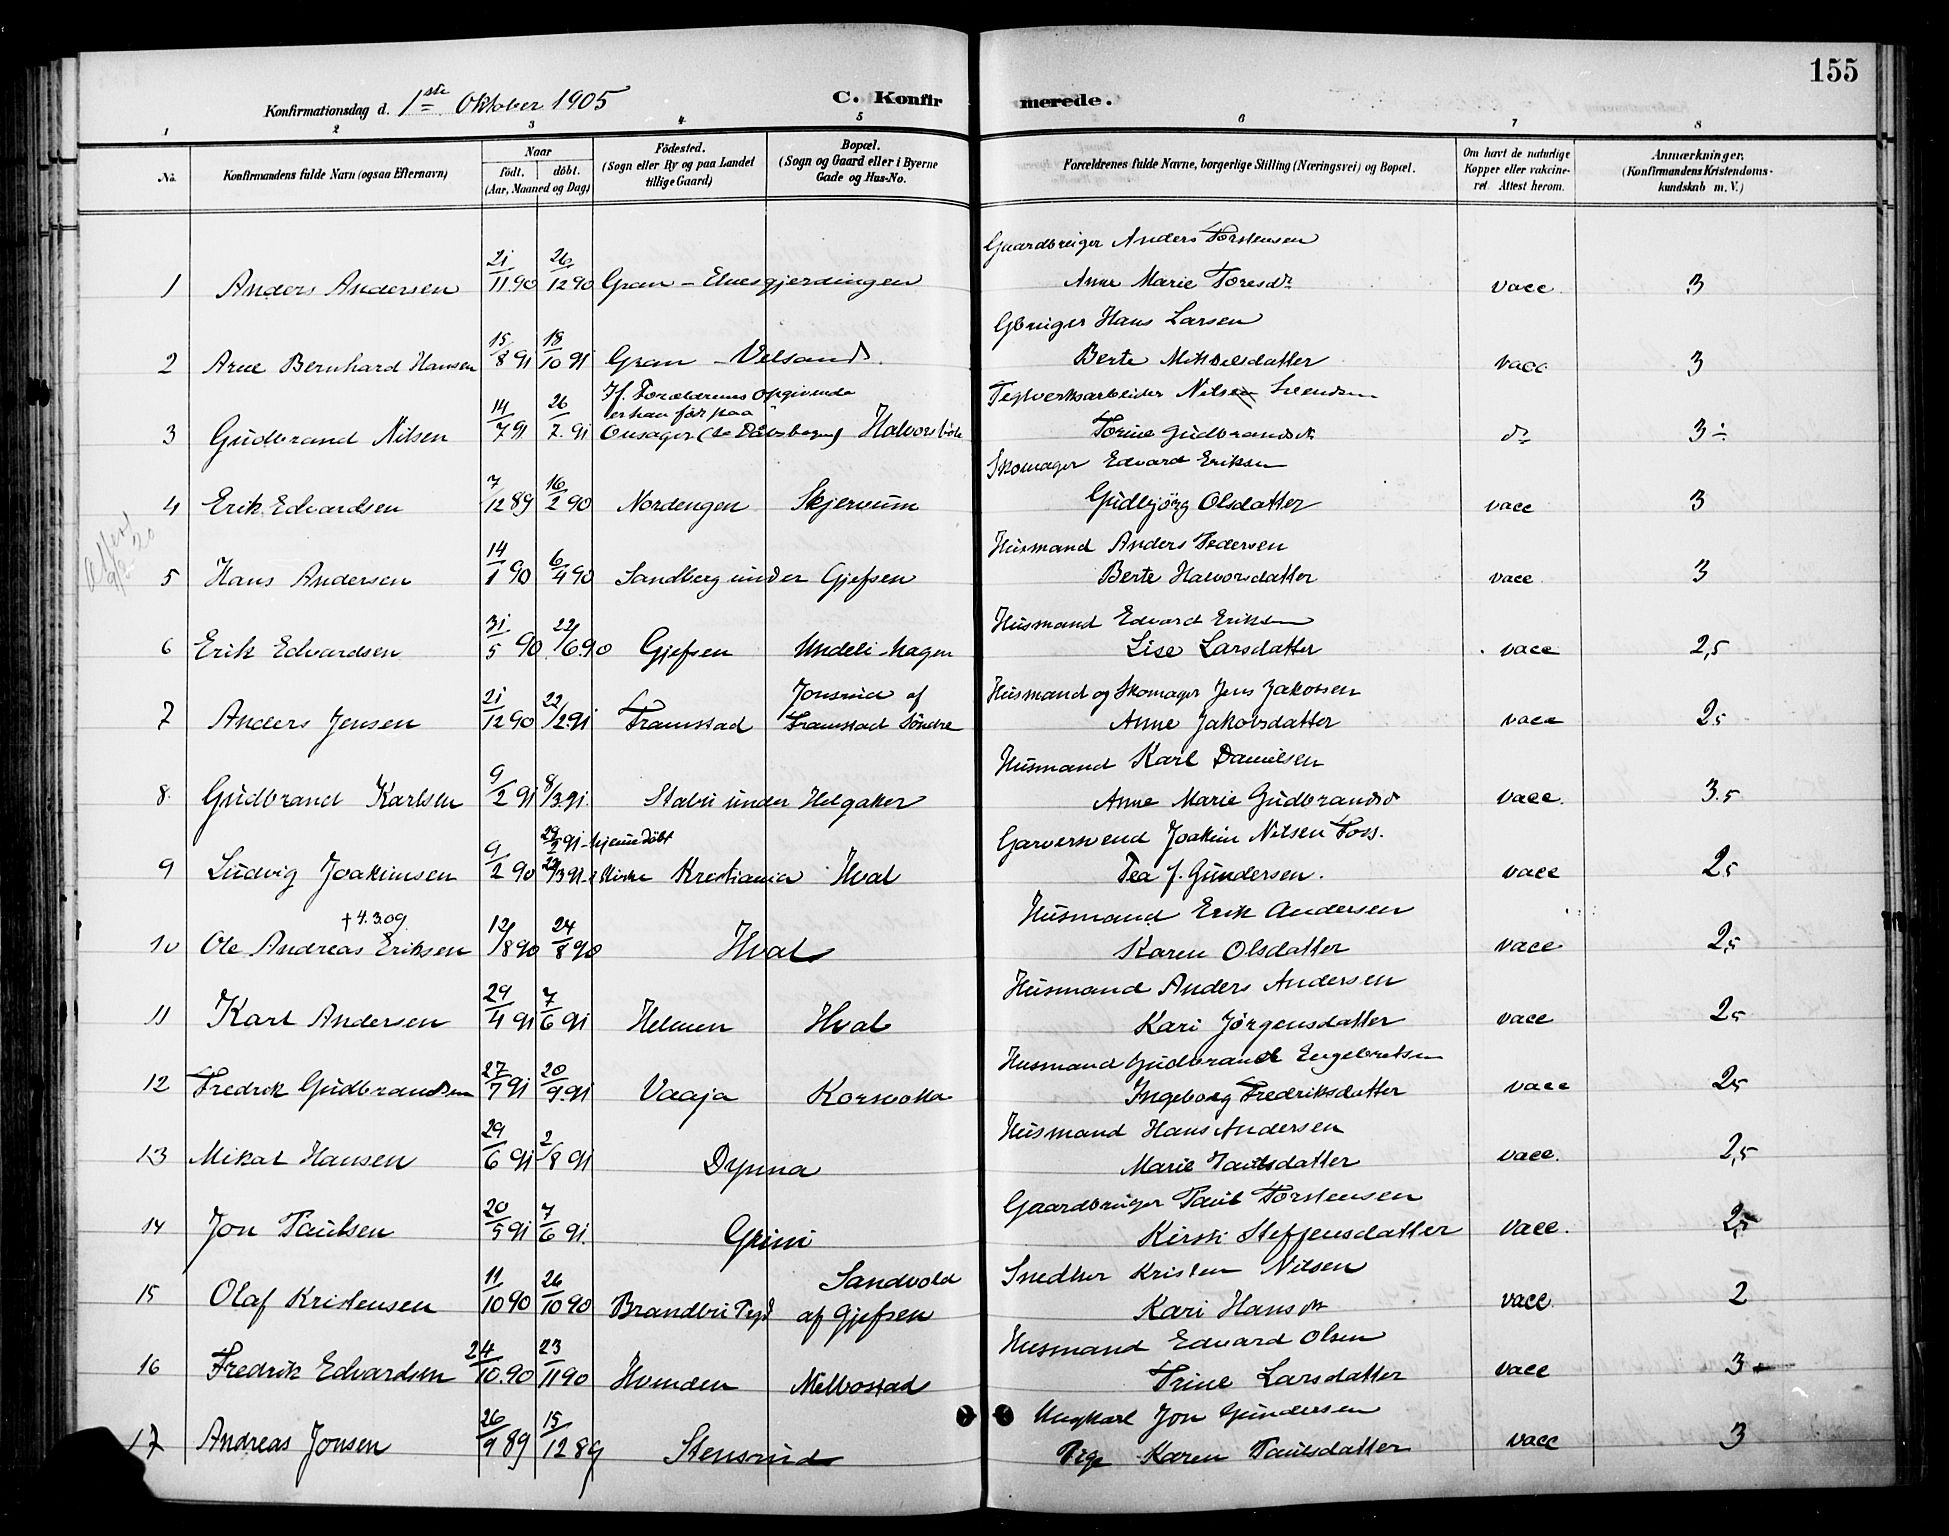 155
Konfirmationsdag d. 1ste Oktober 1905 C. Konfirmerede.
1 2 3 4 5 6 7 8
No. Konfirmandens fulde Navn (ogsaa Efternavn) Naar født. døbt. (Aar, Maaned og Dag) Fødested. (Sogn eller By og paa Landet tillige Gaard) Bopæl. (Sogn og Gaard eller i Byerne Gade og Hus-No. Forældrenes fulde Navne, borgerlige Stilling (Næringsvei) og Bopæl. Om havt de naturlige Kopper eller vakcineret. Attest herom. Anmærkninger. (Konfirmandens Kristendomskundskab m. V.)
Gaardbruger Anders Torstensen
1 Anders Andersen 21/11 90 26/12 90 Gran - Elvesgjerdingen Anne Marie Toresdr vacc. 3
Gbruger Hans Larsen
2 Arne Bernhard Hansen 15/8 91 18/10 91 Gran - Velsand. Berte Mikkelsdatter vacc 3
Teglverksarbeider Nilsen Svendsen
3 Gudbrand Nilsen 14/7 91 26/7. 91 If. Forældrenes Opgivende er han født paa Onsager (se Daabsbogen) Halvorsbøle Torine Gudbrandsdr do 3÷
Skomager Edvard Eriksen
4 Erik Edvardsen 7/12 89 16/2 90 Nordengen Skjervum Gudbjørg Olsdatter vacc 3
Attest
Husmand Anders Pedersen
5 Hans Andersen 14/1 90 6/4 90 Sandberg under Gjefsen Berte Halvorsdatter vacc 3
Husmand Edvard Eriksen
6 Erik Edvardsen 31/5 90 22/6 90 Gjefsen Undeli-hagen Lise Larsdatter vacc 2,5
Husmand og Skomager Jens Jakobsen
7 Anders Jensen 21/12 90 22/2 91 Framstad Jonsrud af Framstad Søndre Anne Jakobsdatter vacc 2,5
Husmand Karl Danielsen
8. Gudbrand Karlsen 9/2 91 8/3 91. Stabu under Helgaker Anne Marie Gudbrandsd vacc. 3.5
Garversvend Joakim Nilsen Foss.
9 Ludvig Joakimsen 9/2 90 29/2 91 - hjemmedøbt 29/3 91 - i Kirke Kristiania Hval Tea J. Gundersen. vacc 2,5
Husmand Erik Andersen
† 4.3.09
10 Ole Andreas Eriksen 12/8 90 24/8 90 Hval Karen Olsdatter vacc 2,5
Husmand Anders Andersen
11 Karl Andersen 29/4 91 7/6 91 Helmen Hval Kari Jørgensdatter vacc 2,5
Husmand Gudbrand Engebretsen
12 Fredrik Gudbrandsen 27/7 91 20/9. 91 Vaaja Korsvolla Ingeborg Fredriksdatter vacc 2,5
Husmand Hans Andersen
13 Mikal Hansen 29/6 91 2/8 91 Dynna Marie Paulsdatter vacc. 2,5
Gaardbruger Paul Torstensen
14 Jon Paulsen 20/5 91 7/6 91. Grini Kirsti Steffensdatter vacc. 2,5
Snedker Kristen Nilsen
15 Olaf Kristensen 11/10 90 26/10 90 Brandbu Pgd Sandvold af Gjefsen Kari Hansdr vacc. 2
Husmand Edvard Olsen
16 Fredrik Edvardsen 24/10. 90 23/11 90 Hvinden Melbostad Trine Larsdatter vacc 3
Ungkarl Jon Gundersen
17 Andreas Jonsen 26/9 89 15/12 89 Stensrud Pige Karen Paulsdatter vacc 3